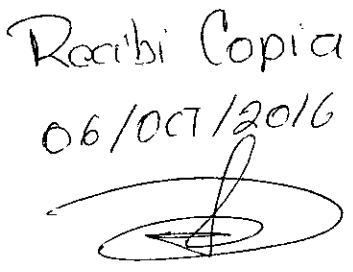 Recibi Copia
06/OCT/2016